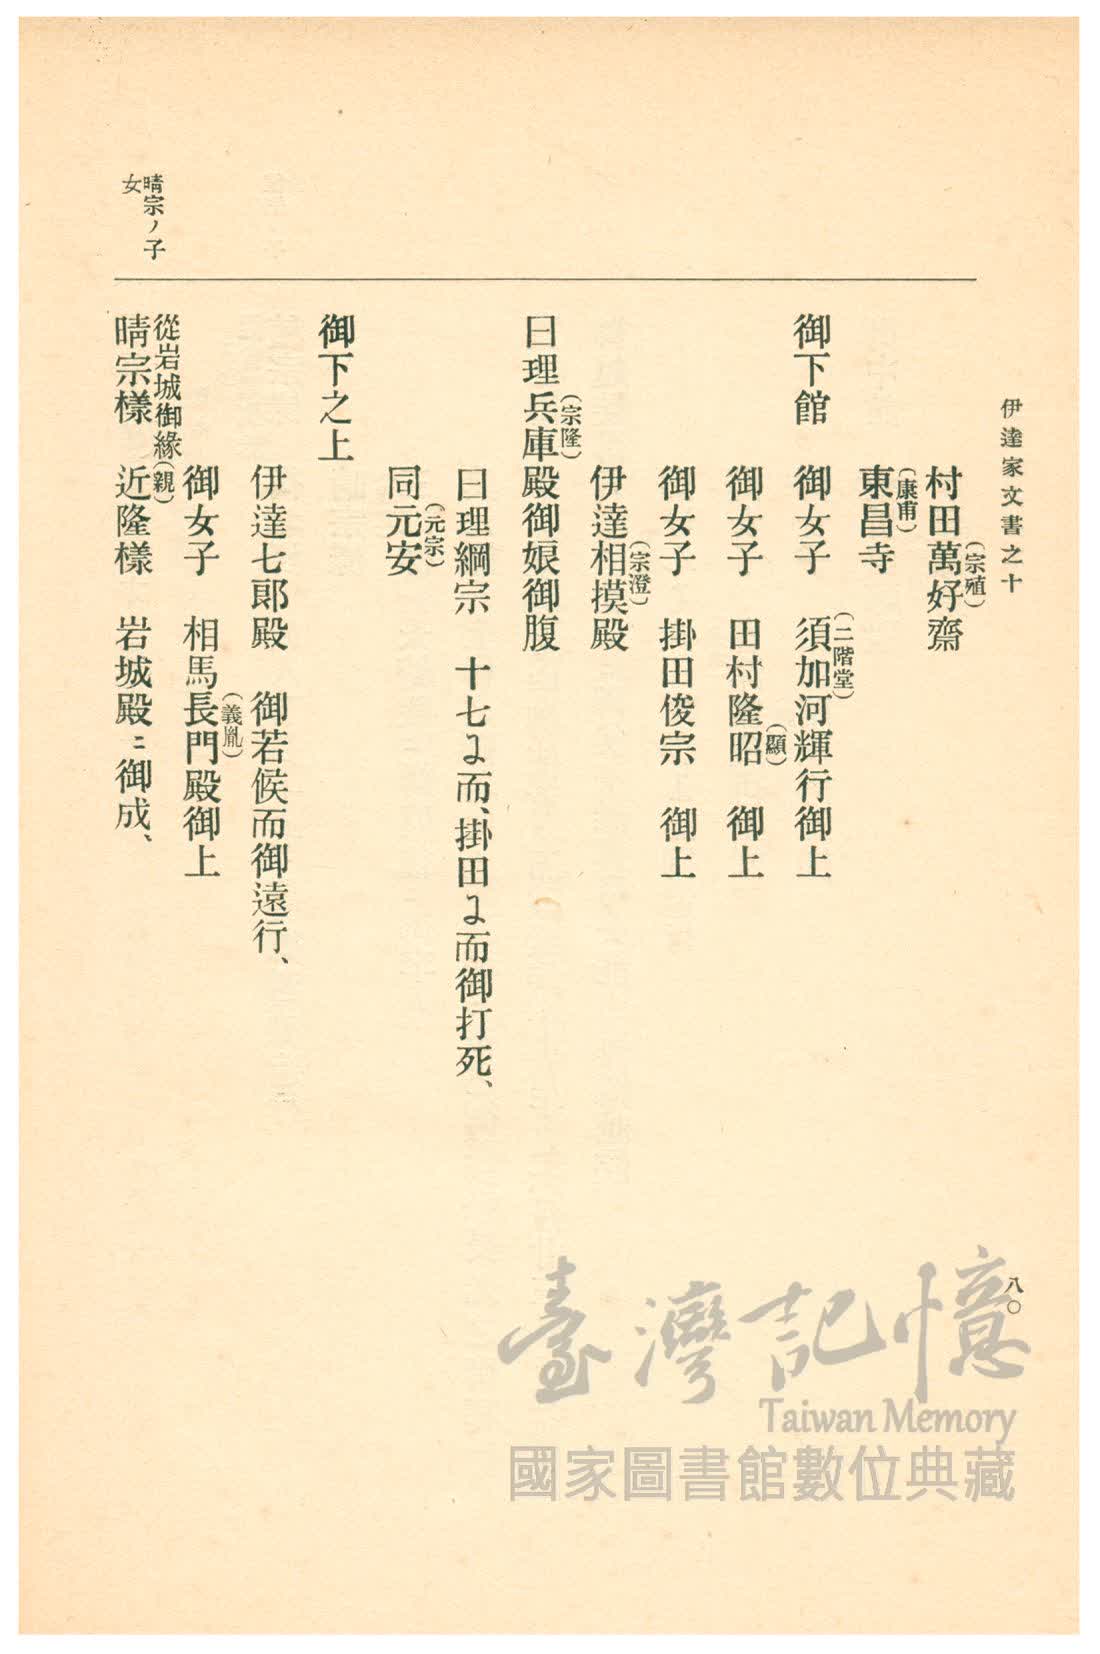 伊達家文書之十
八〇
村田萬好齋
(宗殖)
東昌寺
(康甫)
御下館 御女子 須加河輝行御上
(二階堂)
御女子 田村隆昭 御上
(顯)
御女子 掛田俊宗 御上
伊達相摸殿
(宗澄)
曰理兵庫殿御娘御腹
(宗隆)
曰理綱宗 十七ニ而、掛田ニ而御打死、
同元安
(元宗)
御下之上
伊達七郎殿 御若候而御遠行、
御女子 相馬長門殿御上
(義胤)
從岩城御緣(親)
晴宗樣 近隆樣 岩城殿ニ御成、
晴宗ノ子女
臺灣記憶
Taiwan Memory
國家圖書館數位典藏